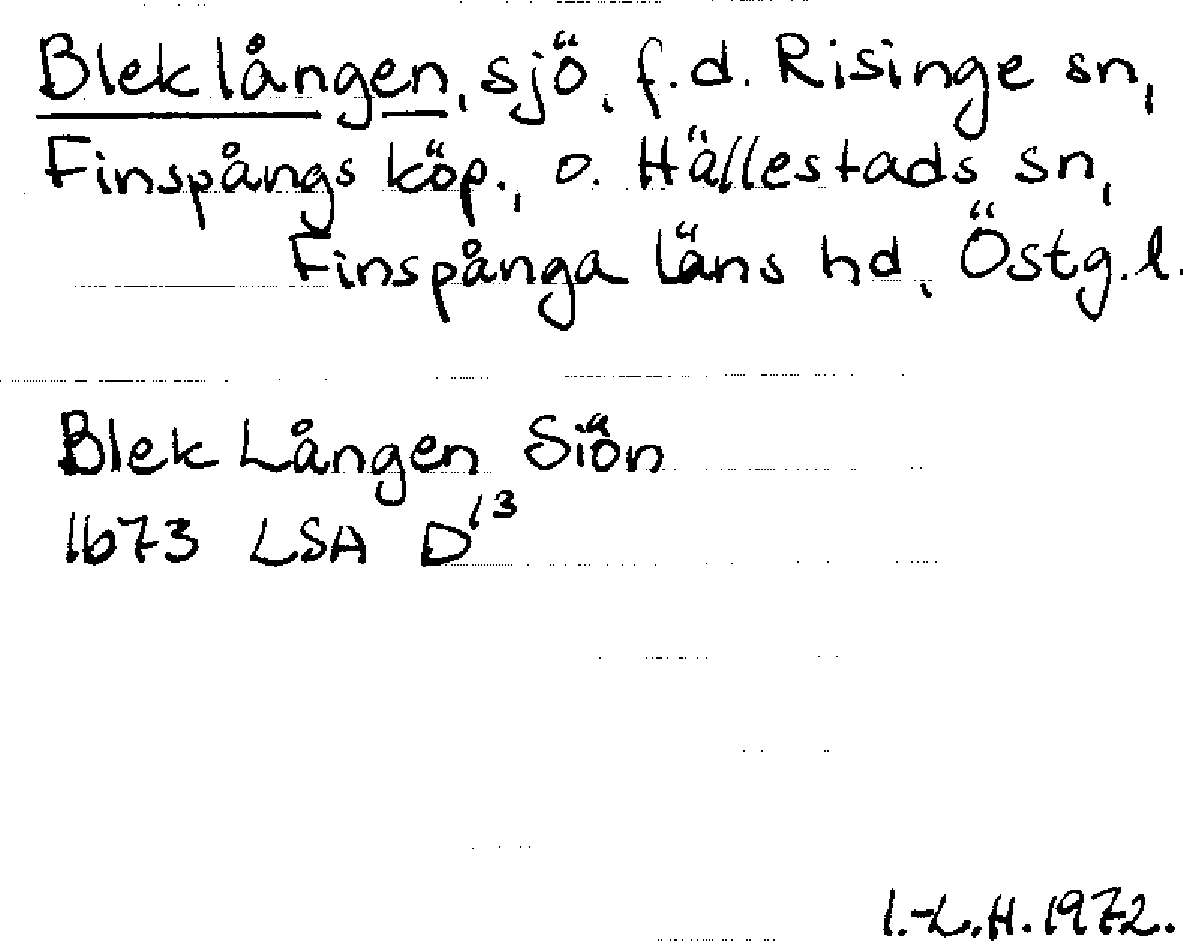 Bleklången, sjö, f.d. Risinge sn,
Finspångs köp., o. Hällestads sn,
Finspånga läns hd, Östg. l.
Blek Lången Siön
1673 LSA D13
I.-L.H. 1972.